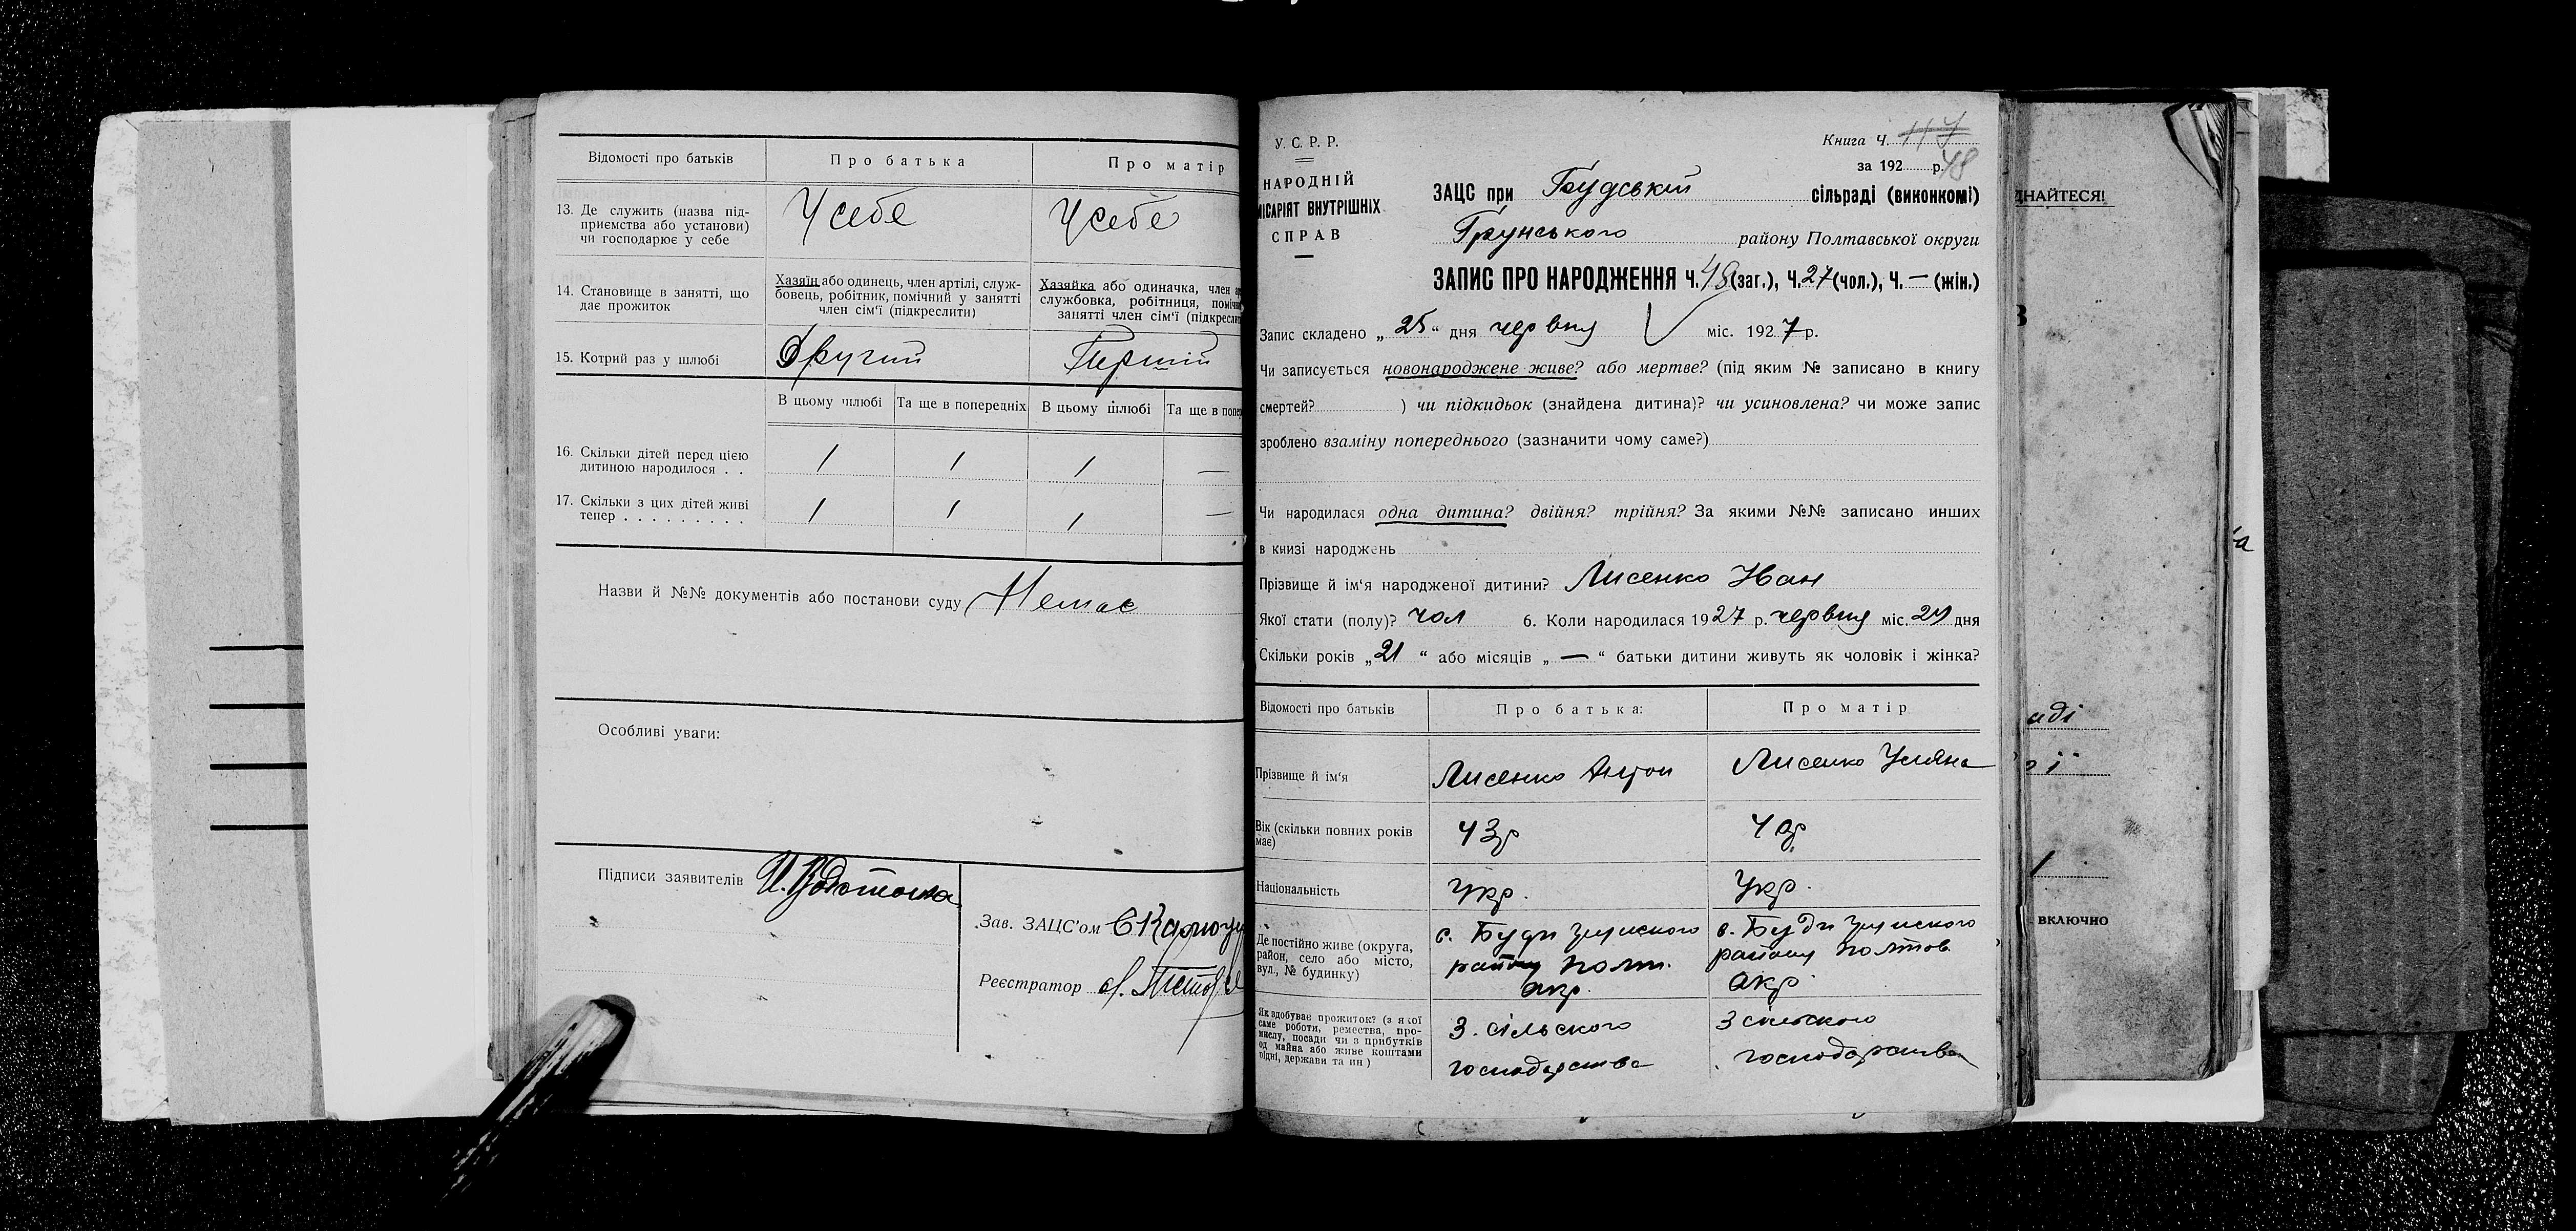 Відомості про батьків
Про батька
Про матір
13. Де служить (назва під-
приємства або установи)
чи господарює у себе
У себе
У себе
14. Становище в занятті, що
дає прожиток
Хазяїн або одинець, член артілі, служ-
бовець, робітник, помічний у занятті
член сім'ї (підкреслити)
Хазяйка або одиначка, член
службовка, робітниця,
занятті член сім'ї
15. Котрий раз у шлюбі
Другий
Перший
В цьому шлюбі
Та ще в попередніх
В цьому шлюбі
Та ще в
16. Скільки дітей перед цією
дитиною народилося . .
1
1
1
—
17. Скільки з цих дітей живі
тепер . . . . . . . . .
1
1
1
—
Назви й №№ документів або постанови суду Немає
Особливі уваги:
Підписи заявителів
Зав. ЗАЦС'ом
Реєстратор
У. С. Р. Р.
НАРОДНІЙ
ВНУТРІШНІХ
СПРАВ
Книга Ч. 117
за 192 р. 48
ЗАЦС при Будській сільраді (виконкомі)
Грунського району Полтавської округи
ЗАПИС ПРО НАРОДЖЕННЯ Ч. 48 (заг.), Ч. 27 (чол.), Ч. — (жін.)
Запис складено „ 25 “ дня червня міс. 192 7 р.
Чи записується новонароджене живе? або мертве? (під яким № записано в книгу
смертей? ) чи підкидьок (знайдена дитина)? чи усиновлена? чи може запис
зроблено взаміну попереднього (зазначити чому саме?)
Чи народилася одна дитина? двійня? трійня? За якими №№ записано инших
в книзі народжень
Прізвище й ім'я народженої дитини? Лисенко Іван
Якої стати (полу)? чол 6. Коли народилася 1927 р. червня міс. 24 дня
Скільки років „ 21 “ або місяців „ — “ батьки дитини живуть як чоловік і жінка?
Відомості про батьків
Про батька:
Про матір
Прізвище й ім'я
Лисенко Антон
Лисенко Уляна
Вік (скільки повних років
має)
43р
40р
Національність
Укр.
Укр.
Де постійно живе (округа,
район, село або місто,
вул., № будинку)
с. Буди Грунского
району Полт.
окр.
с. Буди Грунского
району Полтов
окр
Як здобуває прожиток? (з якої
саме роботи, ремества, про-
мислу, посади чи з прибутків
од майна або живе коштами
рідні, держави та ин)
З. сільського
господарства
З сільского
господарства
ДНАЙТЕСЯ!
В
аді
ої
1
ВКЛЮЧНО